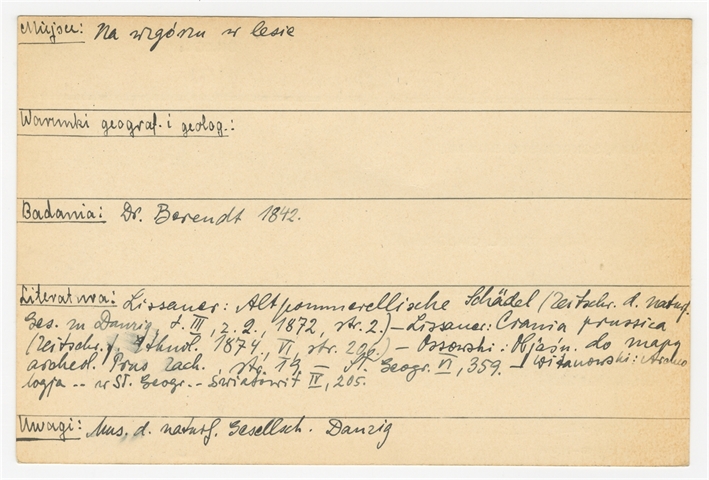 Miejsce: Na wzgórzu w lesie
Warunki geograf. i geolog.:
Badania: Dr. Berendt 1842.
Literatura: Lissauer: Altpommerellische Schädel (Zeitschr. d. naturf.
Ges. in Danzig, t. III, z. 2., 1872, str. 2.) – Lissauer: Crania prussica
(Zeitschr. f. Ethnol. 1874, VI, str.) – Ossowski: Objaśn. do mapy
archeol. Prus Zach., str. 19. – Sł. Geogr. VI, 359. –
logja -- w Sł. Geogr. -- Światowit IV, 205.
Uwagi: Mus. d. naturf. Gesellsch. Danzig